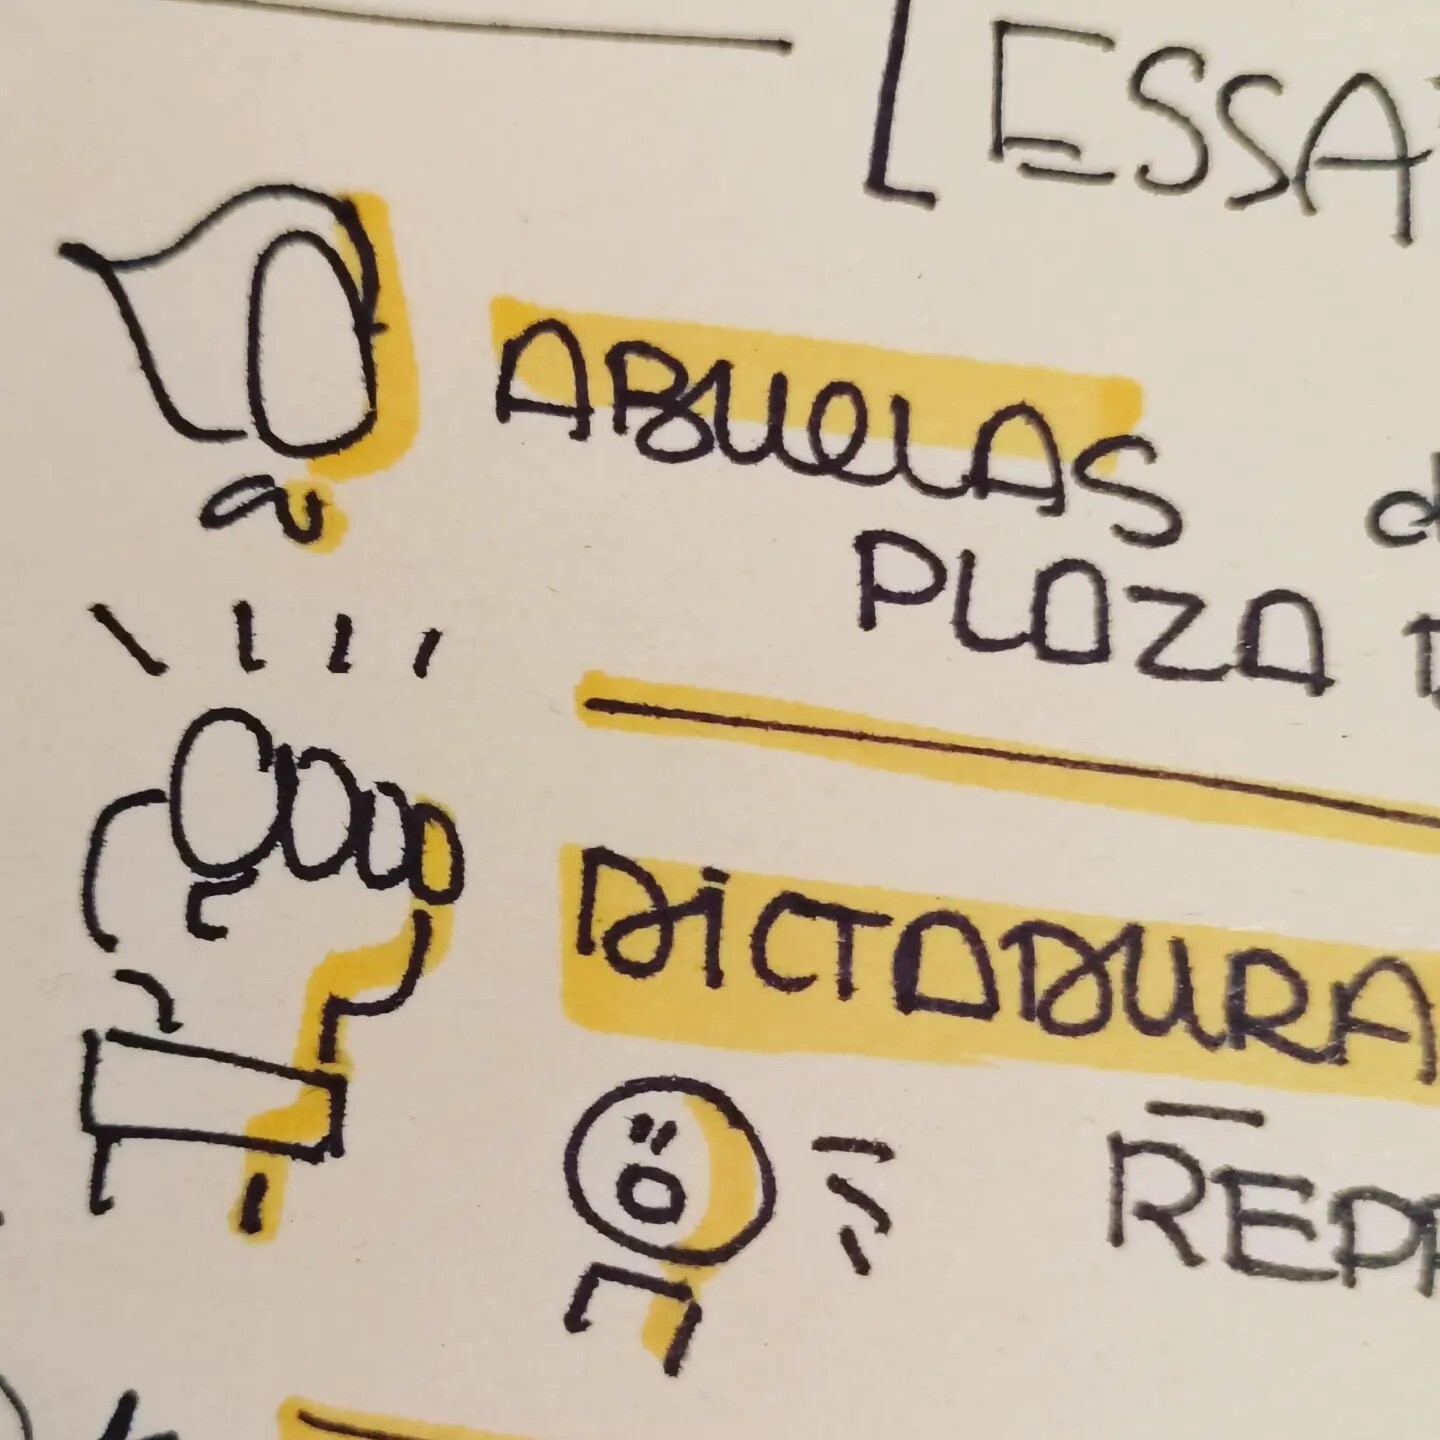 [ESSA
ABUELAS d
PLAZA
DICTADURA
REPR